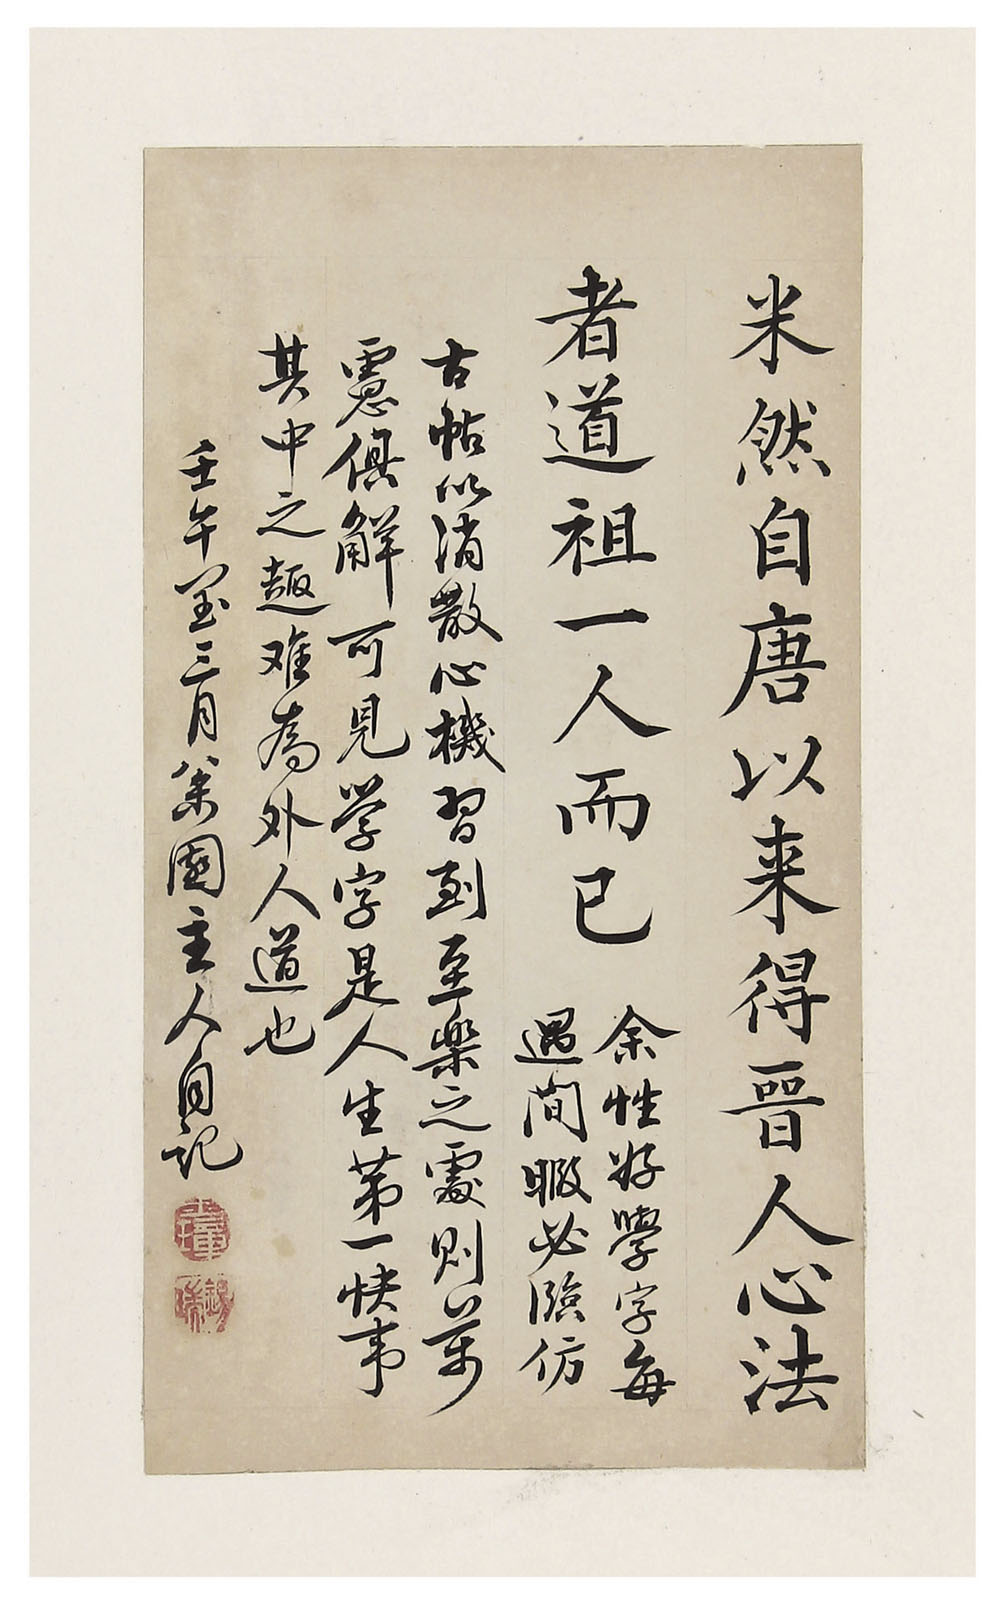 米然自唐以来得晋人心法
者道祖一人而已
余性好學字每
遇简暇必臨仿
古帖以消散心機習到至樂之處则万
慮俱解可見学字是人生第一快事
其中之趣难為外人道也
壬午三月主人自記